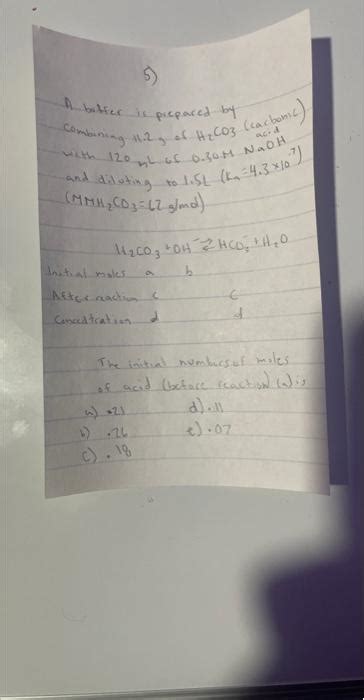 5)
A buffer is prepared by
combining 11.2 g of H2CO3 (carbonic acid)
with 120 mL of 0.30M NaOH
and diluting to 1.5L (Ka=4.3×10⁻⁷)
(MMH2CO3=62 g/mol)
H2CO3 + OH⁻ ⇄ HCO3⁻ + H2O
Initial moles a b
After reaction c c
Concentration d d
The initial numbers of moles
of acid (before reaction) (a) is
a) .21 d) .11
b) .26 e) .07
c) .18